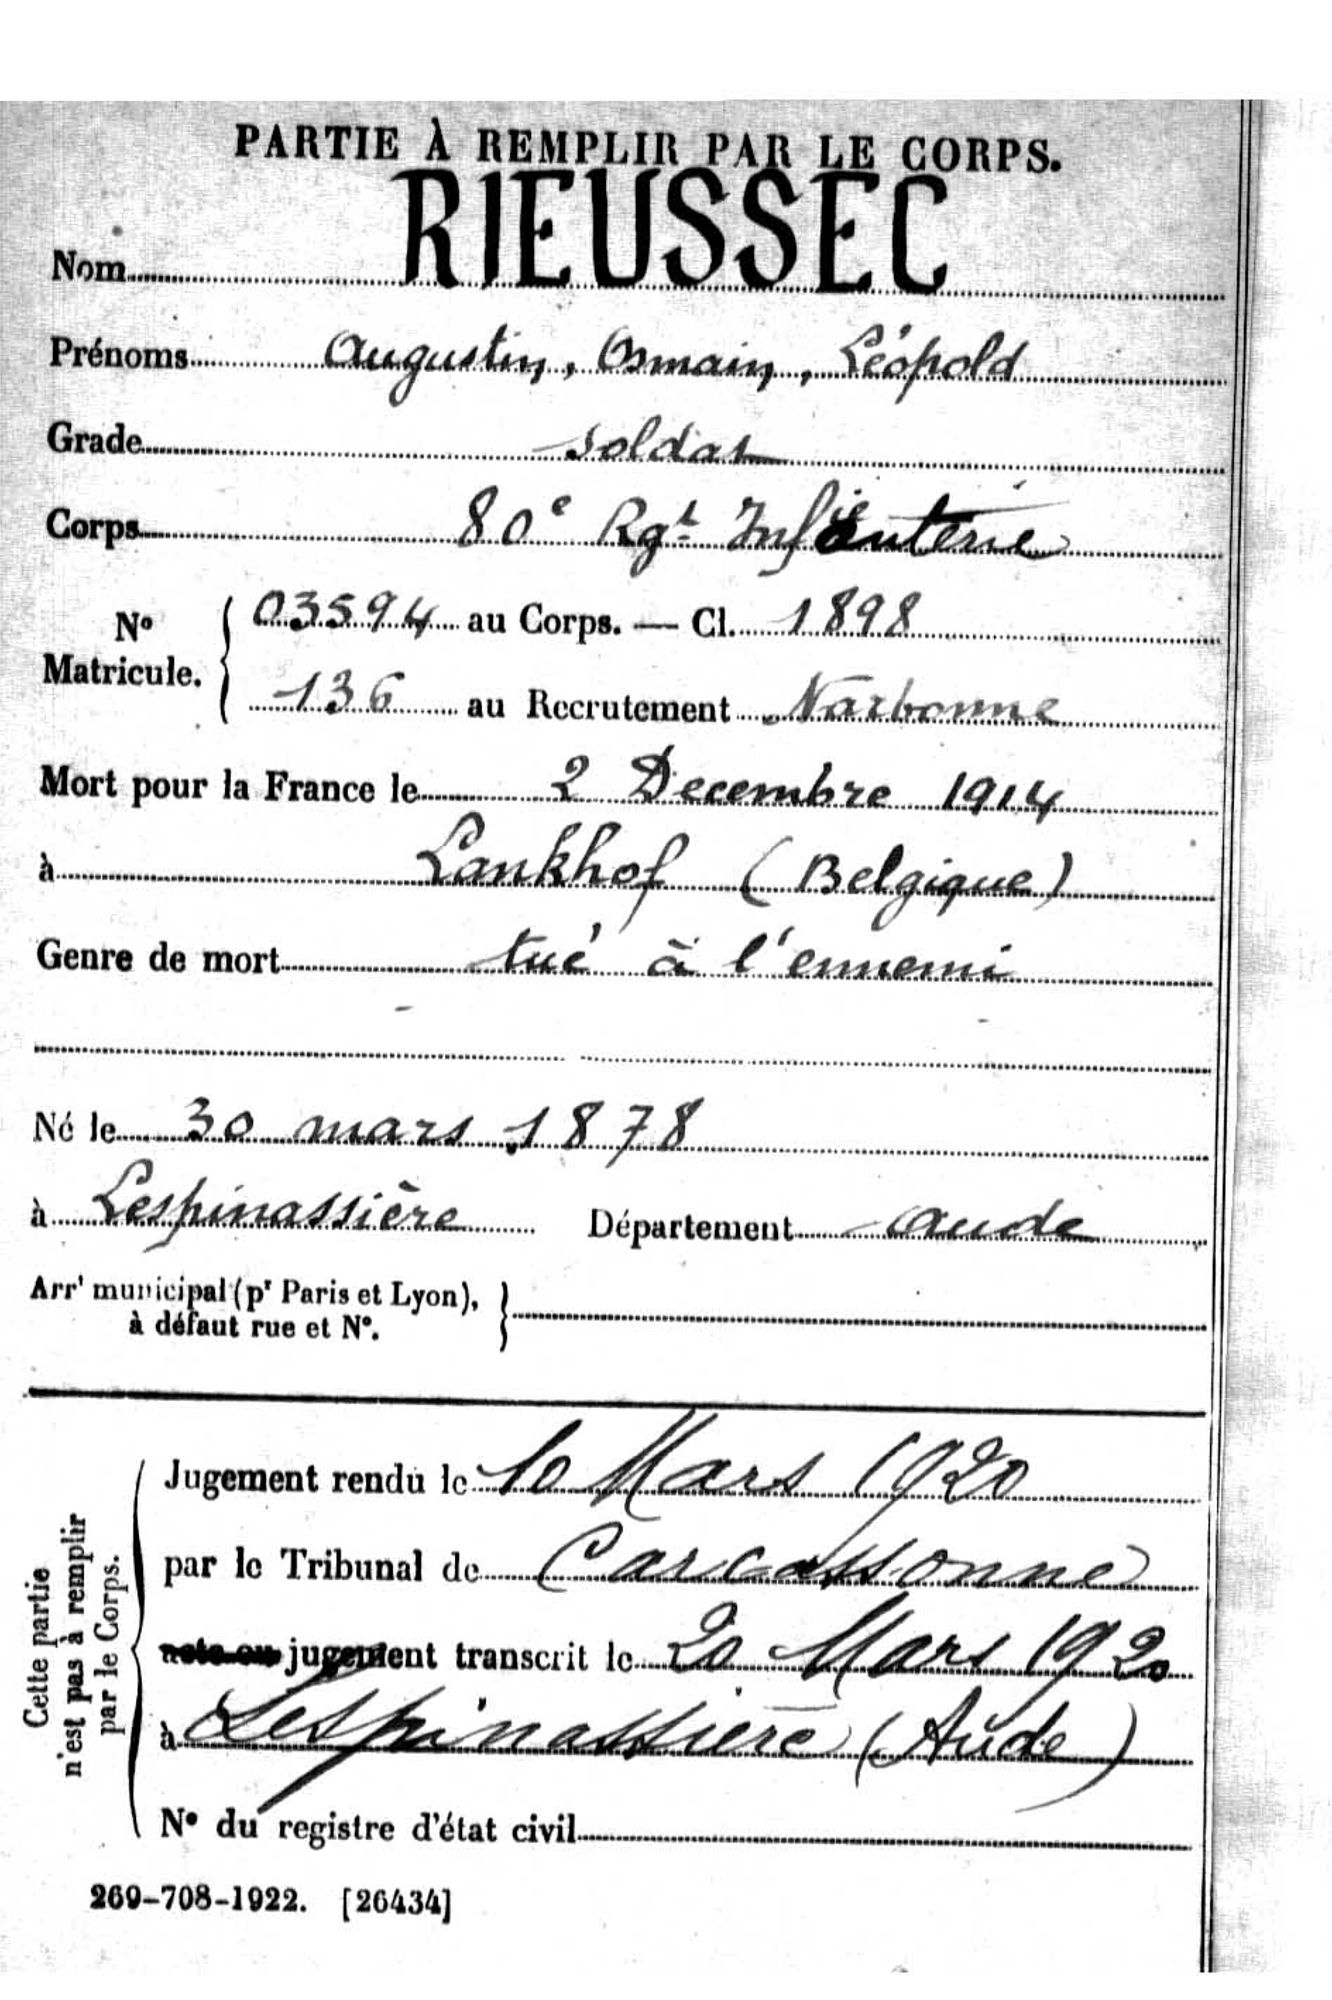 PARTIE À REMPLIR PAR LE CORPS.
Nom RIEUSSEC
Prénoms Augustin, Osmain, Léopold
Grade soldat
Corps 80e Rgt Infanterie
No Matricule. { 03594 au Corps. — Cl. 1898
136 au Recrutement Narbonne
Mort pour la France le 2 Decembre 1914
à Lankhof (Belgique)
Genre de mort tué à l'ennemi
Né le 30 mars 1878
à Lespinassière Département Aude
Arrt municipal (pr Paris et Lyon), à défaut rue et No. }
Cette partie n'est pas à remplir par le Corps.
Jugement rendu le 10 Mars 1920
par le Tribunal de Carcassonne
acte ou jugement transcrit le 20 Mars 1920
à Lespinassière (Aude)
No du registre d'état civil
269-708-1922. [26434]